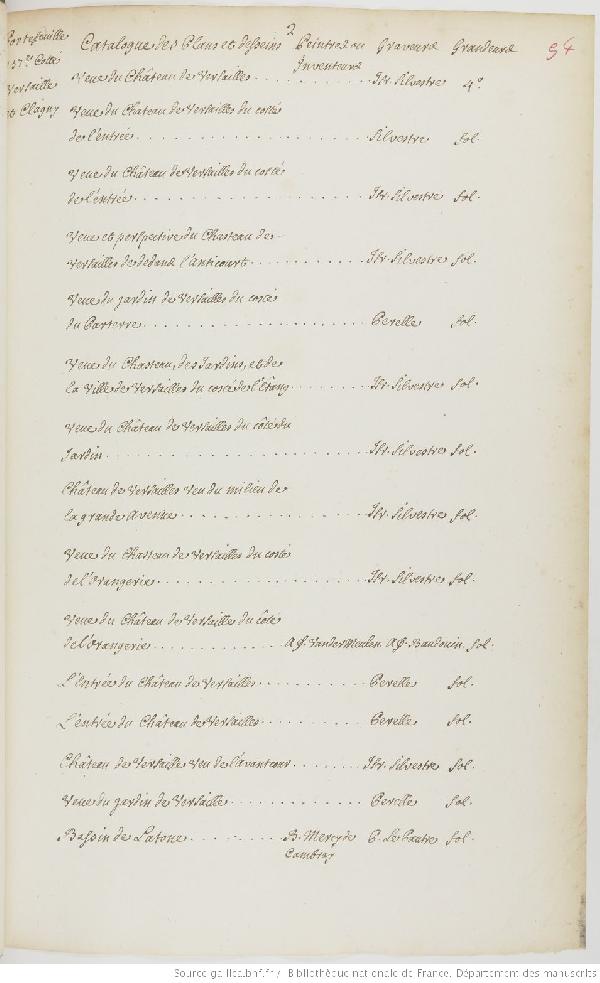 Portefeuille
157.e Cotté
Versaille
et Clagny
2
94
Catalogue des Plans et desseins Peintres ou Inventeurs Graveurs Grandeurs
Veue du Château de Versailles . . . . . . . . . . Isr. Silvestre 4.º
Veue du Chateau de Versailles du costé
de l'entrée . . . . . . . . . . Silvestre fol.
Veue du Château de Versailles du costé
de l'entrée . . . . . . . . . . Isr. Silvestre fol.
Veue et perspective du Chasteau de
Versailles de dedans l'anticourt . . . . . . . . . . Isr. Silvestre fol.
Veue du jardin de Versailles du costé
du Parterre . . . . . . . . . . Perelle fol.
Veue du Chasteau, des Jardins, et de
la Ville de Versailles du costé de l'Etang . . . . . . . . . . Isr. Silvestre fol.
Veue du Château de Versailles du côté du
Jardin . . . . . . . . . . Isr. Silvestre fol.
Château de Versailles veu du milieu de
la grande Avenue . . . . . . . . . . Isr. Silvestre fol.
Veue du Chasteau de Versailles du costé
de l'Orangerie . . . . . . . . . . Isr. Silvestre fol.
Veue du Château de Versailles du côté
de l'Orangerie . . . . . . . . . . A. f. Vander Meulen A. f. Baudouin fol.
L'Entrée du Château de Versailles . . . . . . . . . . Perelle fol.
L'entrée du Château de Versailles . . . . . . . . . . Perelle fol.
Château de Versaille veu de l'avantcour . . . . . . . . Isr. Silvestre fol.
Veue du jardin de Versaille . . . . . . . . . . Perelle fol.
Bassin de Latone . . . . . . . . . . B. Mercy de P. Le Pautre fol.
Cambray
Source gallica.bnf.fr / Bibliothèque nationale de France. Département des manuscrits